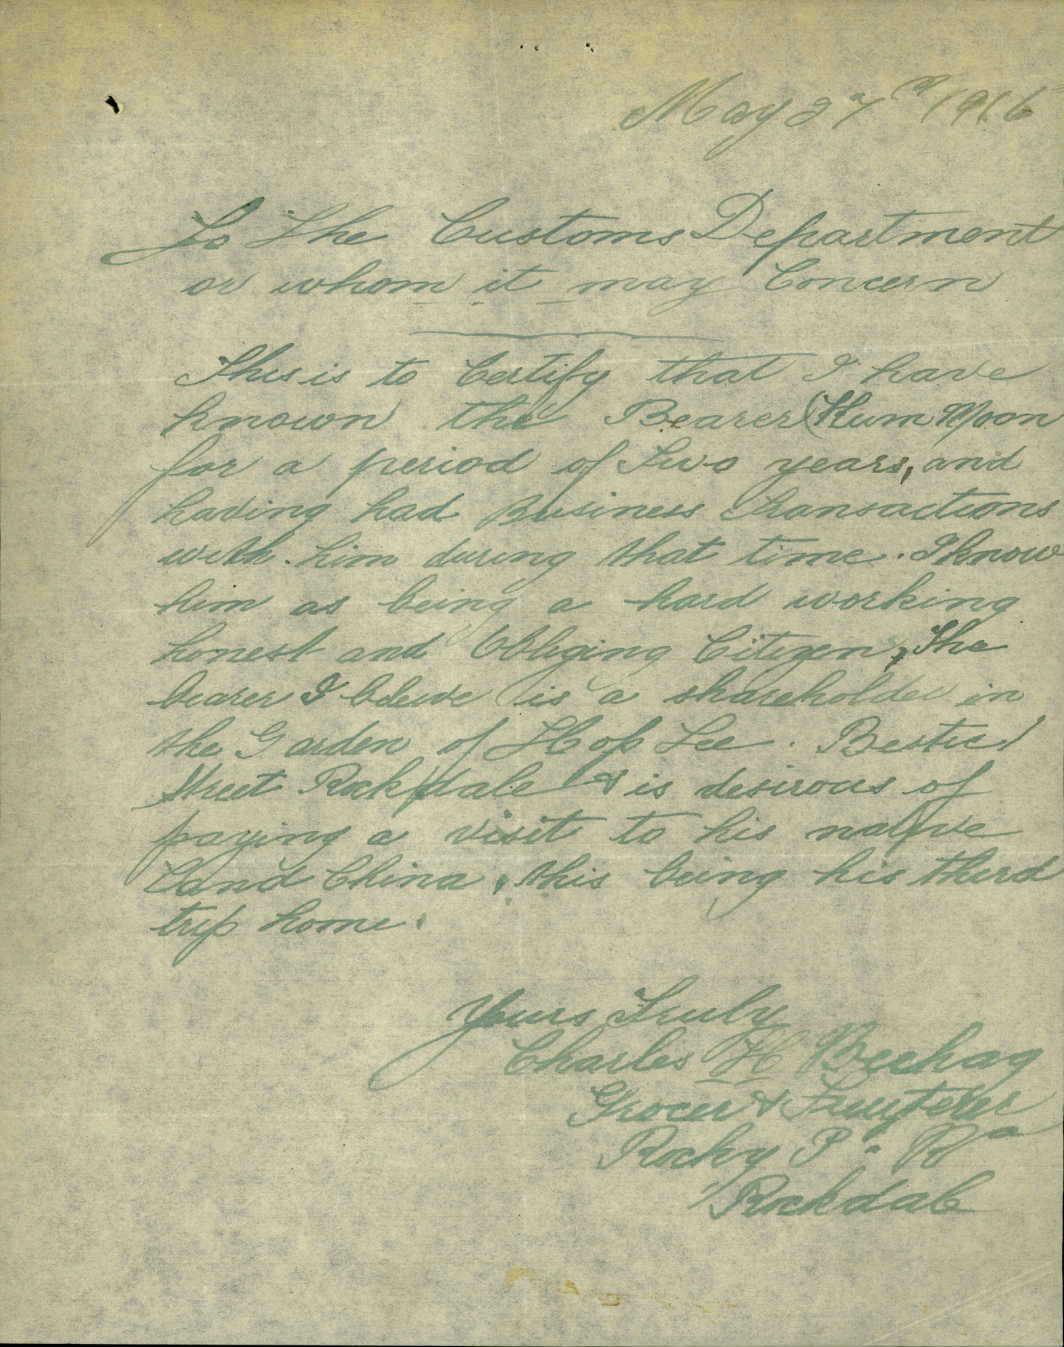 May 27th 1916
To The Customs Department
or whom it may Concern
This is to Certify that I have
known the Bearer (Hum Moon
for a period of Two years, and
having had Business transactions
with him during that time. I know
him as being a hard working
honest and Obliging Citizen, The
bearer I beleive is a shareholder in
the Garden of Hop Lee. Bestic
Street Rockdale & is desirous of
paying a visit to his native
Land China, this being his third
trip home.
Yours Truly
Charles H Beehag
Grocer & Fruyterer
Rocky Pt Rd
Rockdale